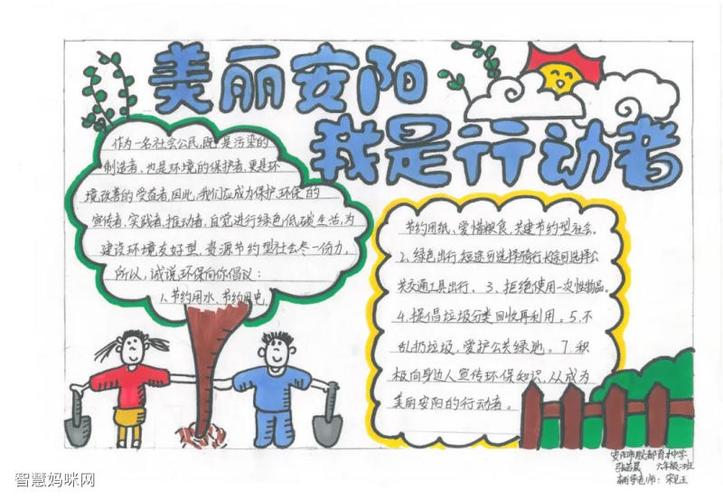 美丽安阳
我是行动者
作为一名社会公民,既是污染的
制造者,也是环境的保护者,更是环
境改善的受益者,因此,我们应成为保护环保的
宣传者,实践者,推动者,自觉进行绿色低碳生活,为
建设环境友好型、资源节约型社会尽一份力。
所以,诚说环保向你倡议:
1、节约用水、节约用电、
节约用纸、爱惜粮食,共建节约型社会。
2、绿色出行,短途可选择骑行,长途可选择公
共交通工具出行。3、拒绝使用一次性物品。
4、提倡垃圾分类回收再利用。5、不
乱扔垃圾,爱护公共绿地。7、积
极向身边人宣传环保知识,从成为
美丽安阳的行动者。
安阳市殷都育才中学
六年级 班
辅导老师:宋
智慧妈咪网